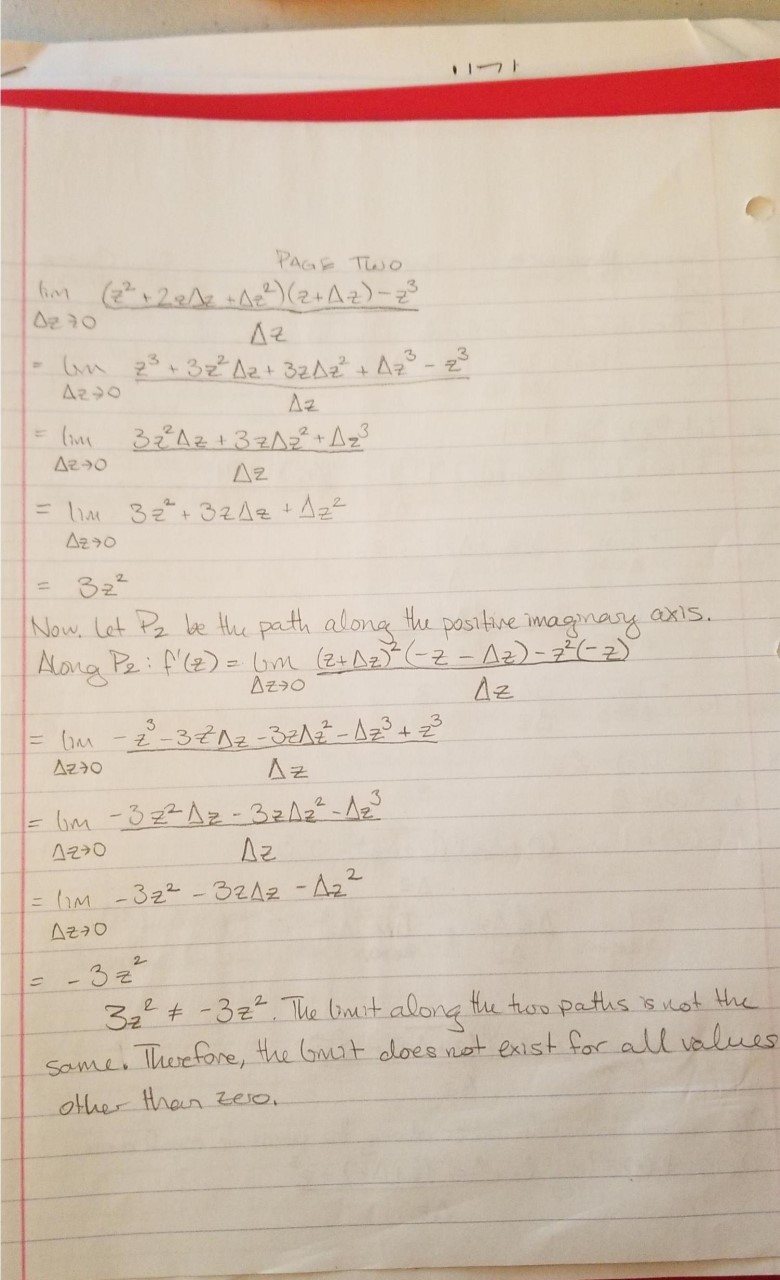 PAGE TWO
lim (z² + 2zΔz + Δz²)(z+Δz) - z³
Δz→0 Δz
= lim z³ + 3z²Δz + 3zΔz² + Δz³ - z³
Δz→0 Δz
= lim 3z²Δz + 3zΔz² + Δz³
Δz→0 Δz
= lim 3z² + 3zΔz + Δz²
Δz→0
= 3z²
Now, let P₂ be the path along the positive imaginary axis.
Along P₂: f'(z) = lim (z+Δz)²(-z - Δz) - z²(-z)
Δz→0 Δz
= lim -z³ - 3z²Δz - 3zΔz² - Δz³ + z³
Δz→0 Δz
= lim -3z²Δz - 3zΔz² - Δz³
Δz→0 Δz
= lim -3z² - 3zΔz - Δz²
Δz→0
= -3z²
3z² ≠ -3z². The limit along the two paths is not the
same. Therefore, the limit does not exist for all values
other than zero.